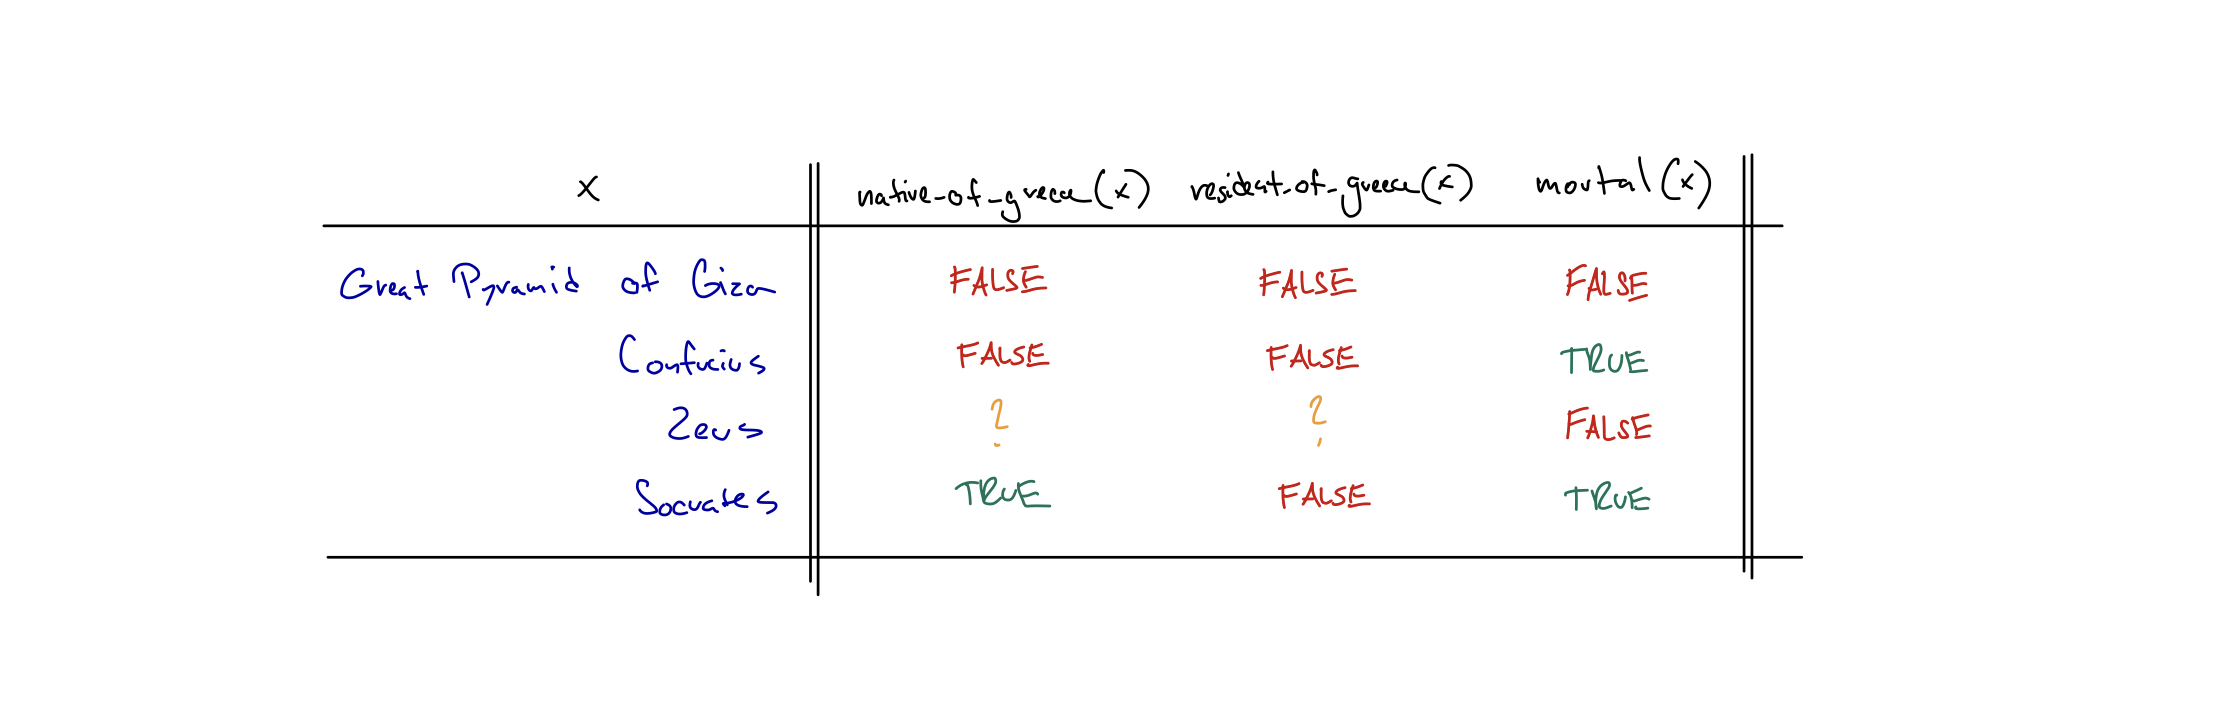 x native-of-greece(x) resident-of-greece(x) mortal(x)
Great Pyramid of Giza FALSE FALSE FALSE
Confucius FALSE FALSE TRUE
Zeus ? ? FALSE
Socrates TRUE FALSE TRUE